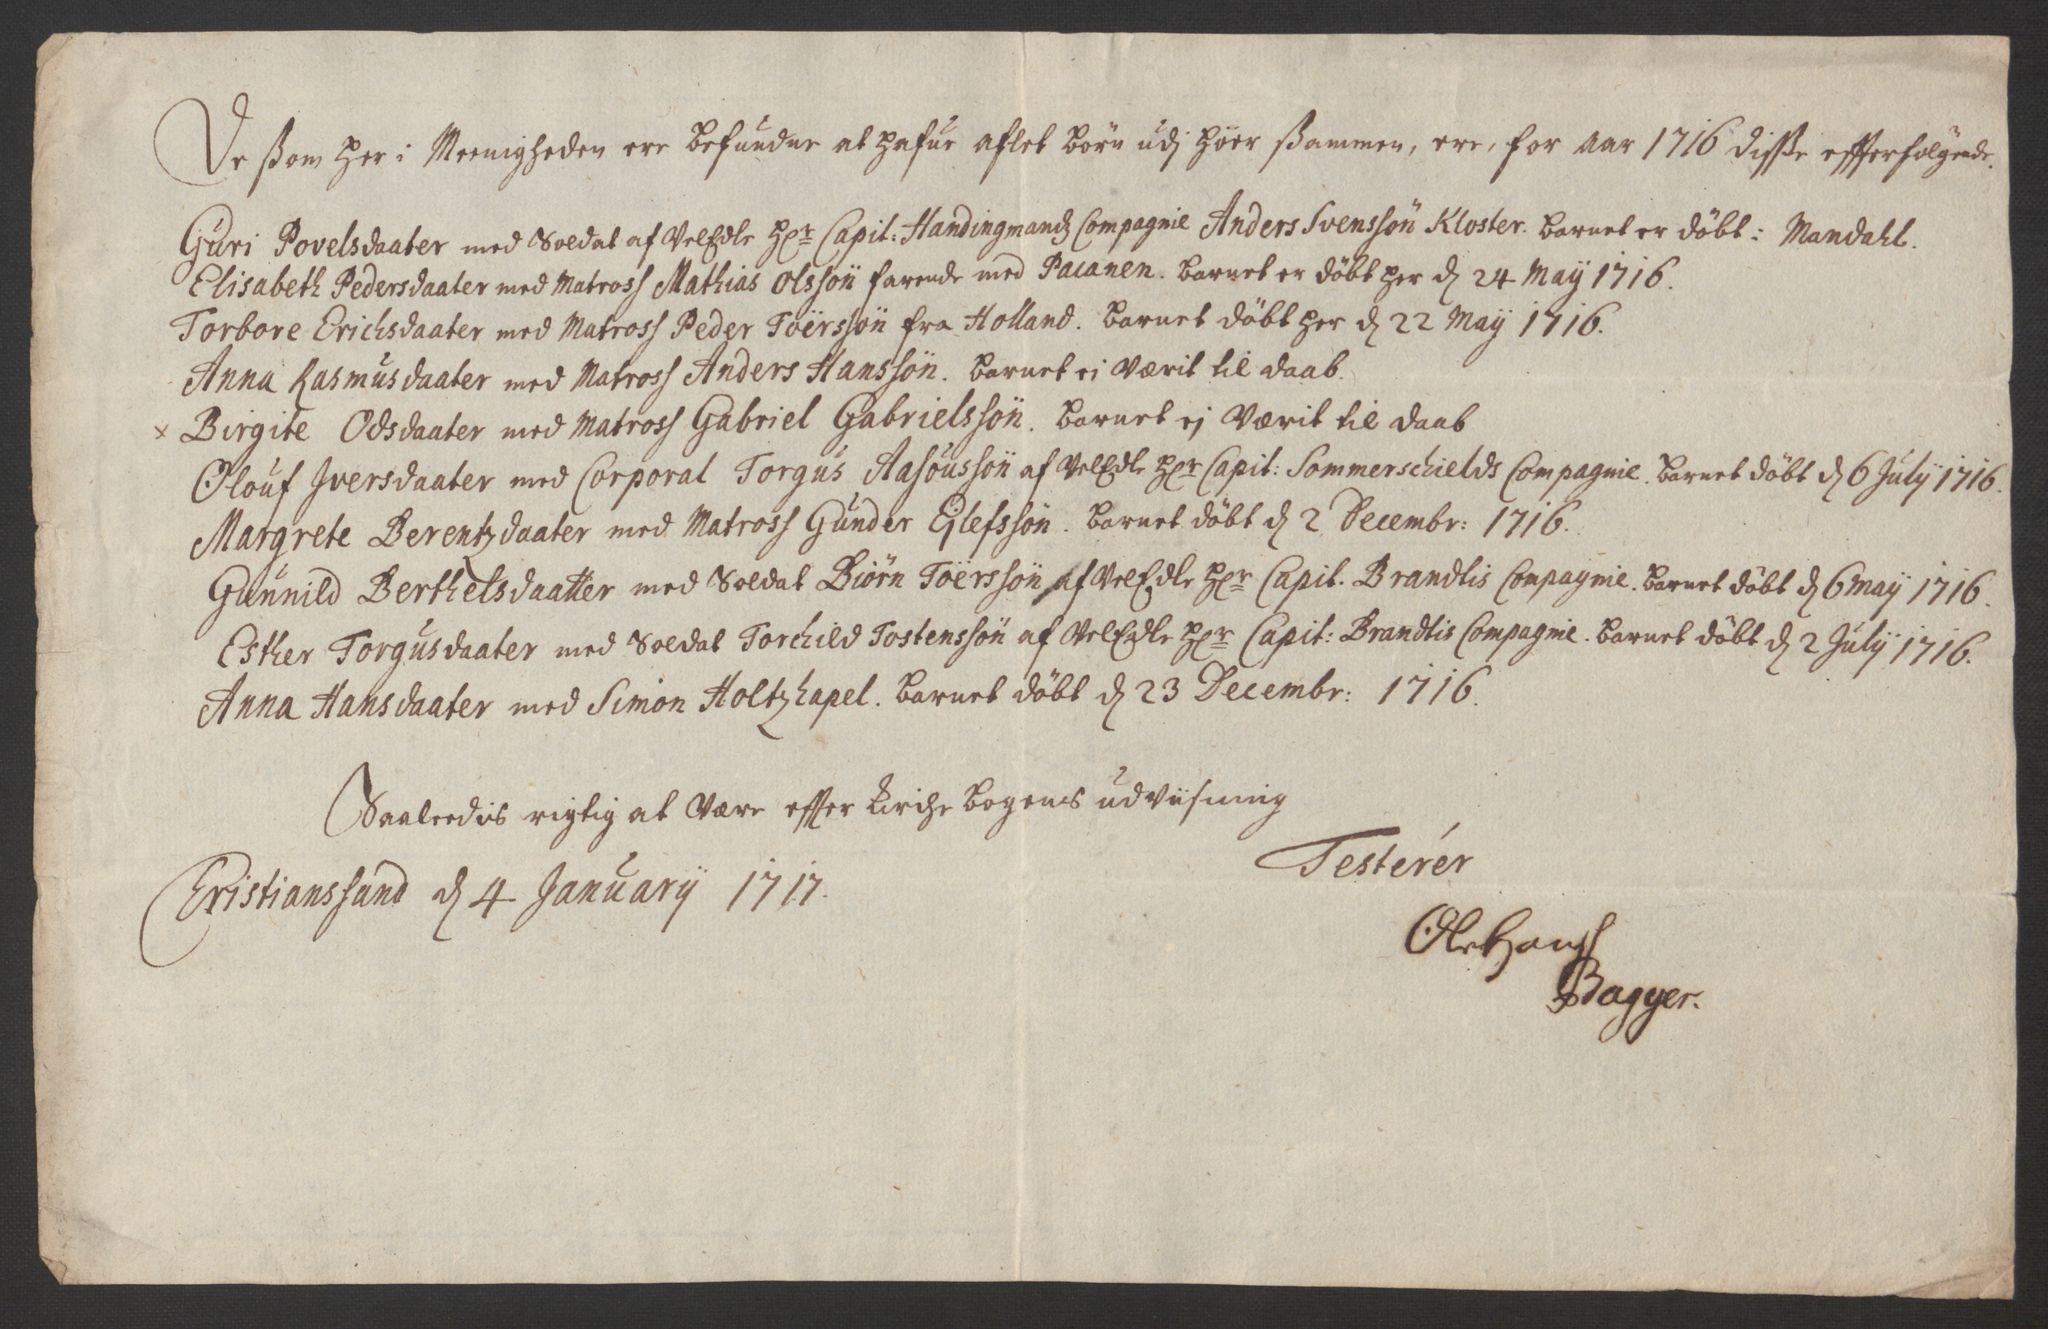 De ßom her i Meenigheden ere befundne at hafue aflet börn udj hoer ßammen, ere, for aar 1716 disße effterfölgende.
Guri Povelsdaater med Soldat af VelEdle Hr Capit: Handingmands Compagnie Anders Svenssön Kloster. barnet er döbt i Mandahl.
Elisabeth Pedersdaater med Matross Mathias Olssön farende med Pacanen. barnet er döbt her d 24 Maÿ 1716.
Torbore Erichsdaater med Matross Peder Toërssön fra Holland. barnet döbt her d 22 Maÿ 1716.
Anna Rasmusdaater med Matross Anders Hanssön. barnet ei værit til daab.
x Birgite Odsdaater med Matross Gabriel Gabrielssön. barnet ej værit til daab
Olouf Iversdaater med Corporal Torgus Aasoussön af VelEdle Hr Capit: Sommerschields Compagnie. barnet döbt d 6 Julÿ 1716.
Margrete Berentzdaater med Matross Gunder Ejlefssön. barnet döbt d 2 Decembr: 1716.
Gunnild Berthelsdaatter med Soldat Biörn Toërssön af VelEdle Hr Capit. Brandtis Compagnie. barnet döbt d 6 maÿ 1716.
Esther Torgusdaater med Soldat Torchild Tostenssön af VelEdle Hr Capit: Brandtis Compagnie. barnet döbt d 2 Julÿ 1716.
Anna Hansdaater med Simon Holtzhapel. barnet döbt d 23 Decembr: 1716.
Saaleedis rigtig at være effter Kirche bogens udviisning
Testerér
Cristianssand d 4 Januarÿ 1717.
Ole Hanss
Bagger.